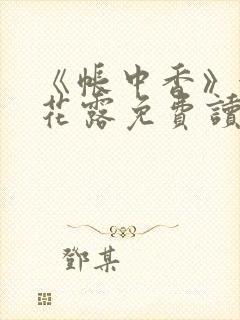 《帳中香》
花露免費讀
鄧某